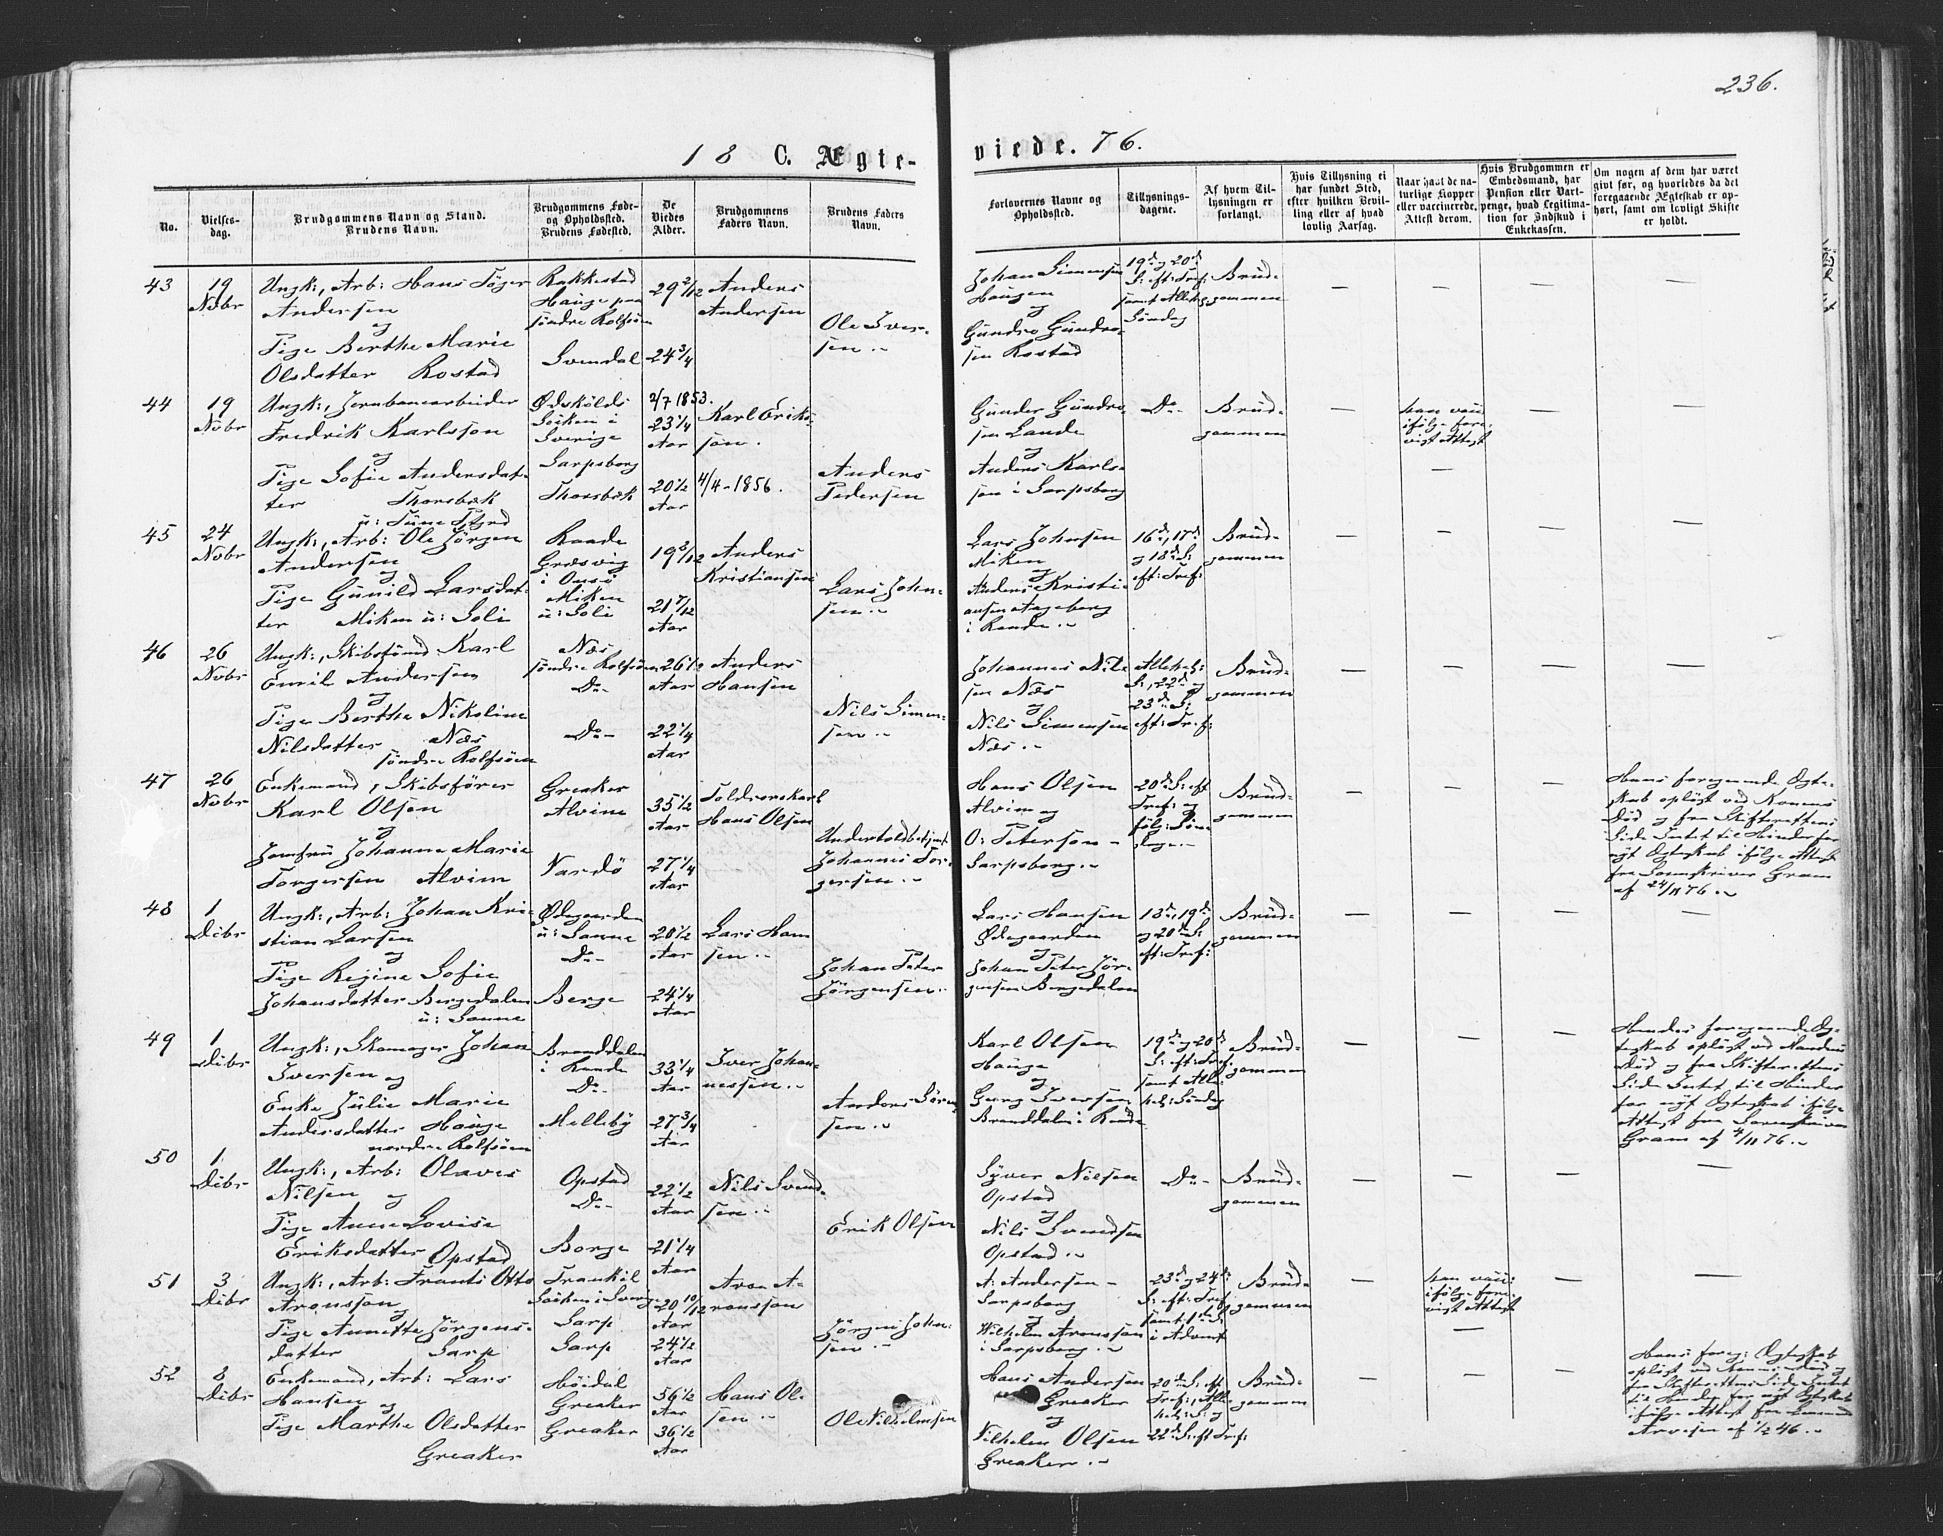 236.
18 C. Ægte-
viede. 76.
No.
Vielses-
dag.
Brudgommens Navn og Stand.
Brudens Navn.
Brudgommens Føde-
og Opholdssted.
Brudens Fødested.
De
Viedes
Alder.
Brudgommens
Faders Navn.
Brudens Faders
Navn.
Forlovernes Navne og
Opholdssted.
Tillysnings-
dagene.
Af hvem Til-
lysningen er
forlangt.
Hvis Tillysning ei
har fundet Sted,
efter hvilken Bevil-
ling eller af hvad
lovlig Aarsag.
Naar havt de na-
turlige Kopper
eller vaccinerede,
Attest derom.
Hvis Brudgommen er
Embedsmand, har
Pension eller Vart-
penge, hvad Legitima-
tion for Indskud i
Enkekassen.
Om nogen af dem har været
givt før, og hvorledes da det
foregaaende Ægteskab er op-
hørt, samt om lovligt Skifte
er holdt.
43
19
Novbr
Ungk:, Arb: Hans Töger
Andersen
og
Pige Berthe Marie
Olsdatter Rostad
Rakkestad
Hauge paa
söndre Rolfsöen
Svendal
29 2/12
24 3/4
Anders
Andersen
Ole Iver-
sen.-
Johan Simensen
Haugen
og
Gundro Gundro-
sen Rostad
19de og 20de
S: eft: Tref:
samt Alleh.
Söndag
Brud-
gommen
44
19
Novbr
Ungk:, Jernbanearbeider
Fredrik Karlsson
og
Pige Sofie Andersdat-
ter Thorsbæk
u: Tune Pgrd
Ødskölds
Socken i
Sverige
Sarpsborg
Thorsbæk
2/7 1853.
23 1/4
Aar
20 1/2
Aar
Karl Eriks-
son.
4/4-1856.
Anders
Pedersen
Gunder Gundro-
sen Lande
Anders Karls-
son i Sarpsborg
Do-
Brud-
gommen
han vacc:
ifölge fore-
vist Attest
45
24
Novbr
Ungk:, Arb: Ole Jörgen
Andersen
og
Pige Gunild Larsdat-
ter Miken u: Soli
Raade
Græsvig
i Onsö
Miken
u: Soli
19 8/12
21 7/12
Aar
Anders
Kristiansen
Lars John-
sen.-
Lars Johnsen
Miken
og
Anders Kristi-
ansen Ageberg
i Raade.-
16de, 17de
og 18de S:
eft: Tref:
Brud-
gommen
46
26
Novbr
Ungk:, Skibstömd Karl
Emil Andersen
og
Pige Berthe Nikoline
Nilsdatter Næs
söndre Rolfsöen
Næs
söndre Rolfsöen
Do-
Do-
26 1/2
Aar
22 1/4
Aar
Anders
Hansen
Nils Simen-
sen.-
Johannes Nil-
sen Næs
og
Nils Simensen
Næs.-
Alleh:
S:, 22de og
23de S:
eft: Tref:
Brud-
gommen
47
26
Novbr
Enkemand, Skibsförer
Karl Olsen
og
Jomfru Johanne Marie
Torgersen Alvim
Greaker
Alvim
Vardö
35 1/2
Aar
27 1/4
Aar
Toldroerskarl
Hans Olsen
Undertoldbetjent
Johannes Tor-
gersen.-
Hans Olsen
Alvim og
O: Peterson-
Sarpsborg.-
20de S: eft
Tref: og
fölg: Sön-
dage.-
Brud-
gommen
Hans foregaaende Ægte-
skab oplöst ved Konens
Död og fra Skifterettens
Side Intet til Hinder for
nyt Ægteskab ifölge Attest
fra Sorenskriver Gram
af 24/11 76.-
48
1
Decbr
Ungk:, Arb: Johan Kri-
stian Larsen
og
Pige Regine Sofie
Johansdatter Bergedalen
u: Sanne
Ødegaarden
u: Sanne
Do-
Berge
20 1/2
Aar
24 1/4
Aar
Lars Han-
sen.-
Johan Peter
Jörgensen.-
Lars Hansen
Ødegaarden
og
Johan Peter Jör-
gensen Bergedalen
18de, 19de
og 20de S:
eft: Tref:
Brud-
gommen
49
1
Decbr
Ungk:, Skomager Johan
Iversen og
Enke Julie Marie
Andersdatter Hauge
nordre Rolfsöen
Branddalen
i Raade
Do-
Melleby
33 1/4
Aar
27 3/4
Aar
Iver Johan-
nessen.-
Anders Sören-
sen.-
Karl Olsen
Hauge
og
Georg Iversen
Branddalen i Raade
19de og 20de
S: eft: Tref:
samt Alle-
hel: Söndag
Brud-
gommen
Hendes foregaaende Æg-
teskab oplöst ved Mandens
Död og fra Skifterettens
Side Intet til Hinder
for nyt Ægteskab ifölge
Attest fra Sorenskriver
Gram af 4/11 76.-
50
1
Decbr
Ungk:, Arb: Olaves
Nilsen og
Pige Anne Lovise
Eriksdatter Opstad
Opstad
Do-
Borge
22 1/2
Aar
21 1/4
Aar
Nils Svend-
sen.-
Erik Olsen
Syver Nilsen
Opstad
og
Nils Svendsen
Opstad.-
Do-
Brud-
gommen
51
3
Decbr
Ungk:, Arb: Frants Otto
Aronsson
og
Pige Annette Jörgens-
datter Sarp
Trankil
Socken i Sverge
Sarp
Sarp
20 10/12
Aar
24 1/2
Aar
Aron A-
ronsson
Jörgen John-
sen.-
A: Andersen-
Sarpsborg
og
Wilhelm Aronsson
i Sarpsborg.-
23de og 24de
S: eft: Tref
samt 1ste S:
i Advent
Brud-
gommen
han vacc:
ifölge fore-
vist Attest
52
8
Decbr
Enkemand, Arb: Lars
Hansen og
Pige Marthe Olsdatter
Greaker
Höidal
Greaker
Greaker
56 1/2
Aar
36 1/2
Aar
Hans Ol-
sen.-
Ole Vilhelmsen
Hans Andersen
Greaker
og
Vilhelm Olsen
Greaker.-
20de S: eft
Tref:, Alle-
hel: S: og
22de S: eft Tref:
Brud-
gommen
Hans foreg: Ægteskab
oplöst ved Konens Död og
fra Skifterettens Side Intet
til Hinder for nyt Ægteskab
ifölge Attest fra
af 1/2 46.-